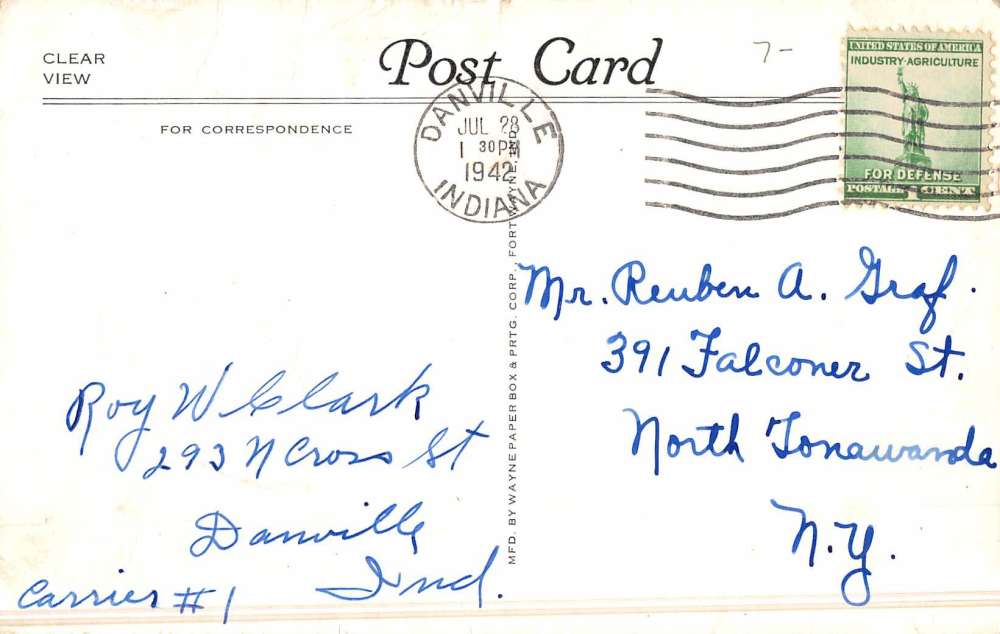 CLEAR
VIEW
Post Card
7-
FOR CORRESPONDENCE
DANVILLE
JUL 28
1 30 PM
1942
INDIANA
UNITED STATES OF AMERICA
INDUSTRY·AGRICULTURE
FOR DEFENSE
POSTAGE 1 CENT
MFD. BY WAYNE PAPER BOX & PRTG. CORP., FORT WAYNE, IND.
Roy W Clark
293 N Cross St
Danville
Ind.
Carrier #1
Mr. Reuben A. Graf.
391 Falconer St.
North Tonawanda
N.Y.